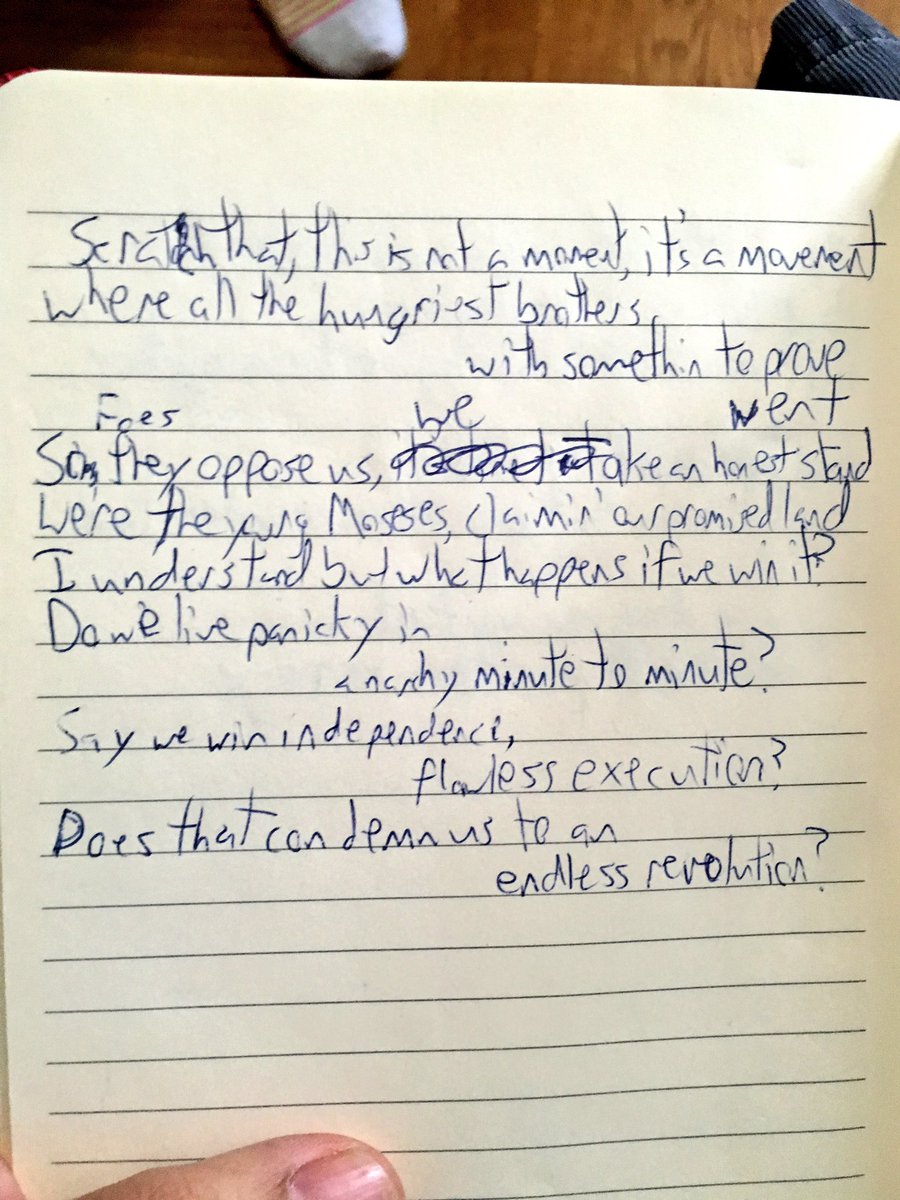 Scratch that, this is not a moment, it's a movement
where all the hungriest brothers
with somethin to prove
Foes we went
So, they oppose us, take an honest stand
We're the young Moseses, claimin' our promised land
I understand but what happens if we win it?
Do we live panicky in
anarchy minute to minute?
Say we win independence,
flawless execution?
Does that condemn us to an
endless revolution?